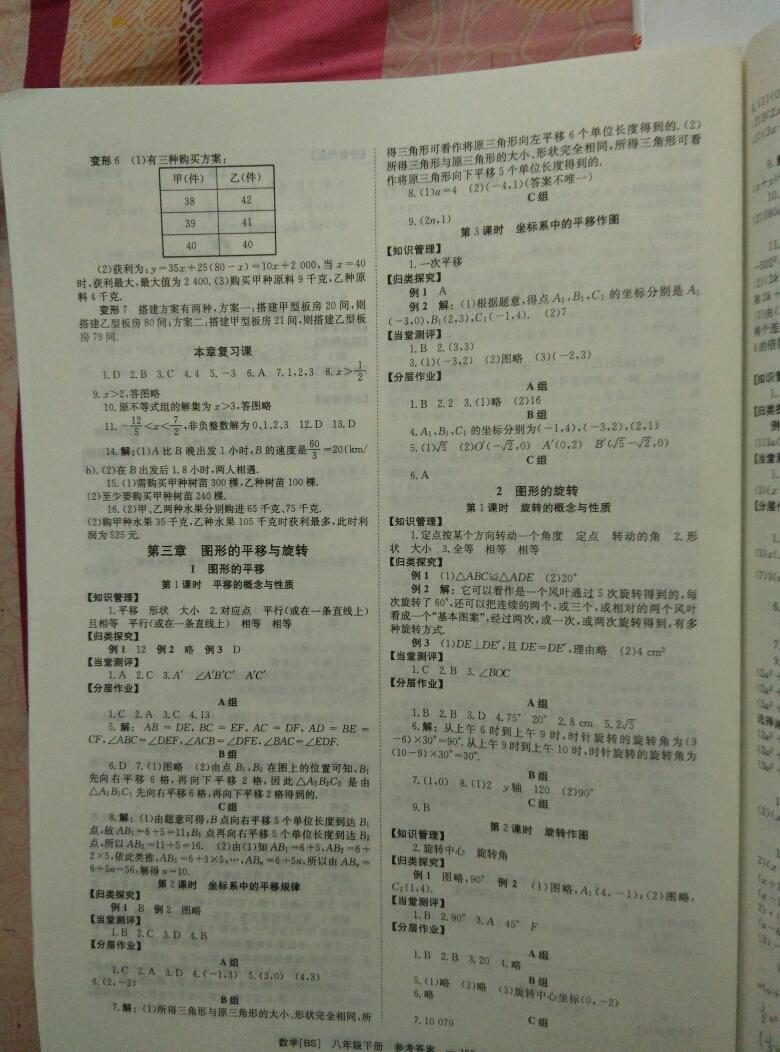 变形6 (1)有三种购买方案:
甲(件) 乙(件)
38 42
39 41
40 40
(2)获利为:y=35x+25(80-x)=10x+2 000,当x=40
时,获利最大,最大值为2 400.(3)购买甲种原料9千克,乙种原
料4千克.
变形7 搭建方案有两种,方案一:搭建甲型板房20间,则
搭建乙型板房80间;方案二:搭建甲型板房21间,则搭建乙型板
房79间.
本章复习课
1.D 2.B 3.C 4.4 5.-3 6.A 7.1,2,3 8.x>1/2
9.x>2,答图略
10.原不等式组的解集为x>3,答图略
11.-12/5<x<7/2,非负整数解为0,1,2,3 12.D 13.D
14.解:(1)A比B晚出发1小时,B的速度是60/3=20(km/
h).(2)在B出发后1.8小时,两人相遇.
15.(1)需购买甲种树苗300棵,乙种树苗100棵.
(2)至少要购买甲种树苗240棵.
16.(2)甲、乙两种水果分别购进65千克、75千克.
(2)购甲种水果35千克,乙种水果105千克时获利最多,此时利
润为525元.
第三章 图形的平移与旋转
1 图形的平移
第1课时 平移的概念与性质
【知识管理】
1.平移 形状 大小 2.对应点 平行(或在一条直线上)
且相等 平行(或在一条直线上) 相等 相等
【归类探究】
例1 12 例2 略 例3 D
【当堂测评】
1.A 2.C 3.A′ ∠A′B′C′ A′C′
【分层作业】
A组
1.C 2.A 3.C 4.13
5.解:AB=DE,BC=EF,AC=DF,AD=BE=
CF,∠ABC=∠DEF,∠ACB=∠DFE,∠BAC=∠EDF.
B组
6.D 7.(1)图略 (2)由点B₁,B₂在图上的位置可知,B₁
先向右平移6格,再向下平移2格,因此△A₂B₂C₂是由
△A₁B₁C₁先向右平移6格,再向下平移2格得到的.
C组
8.解:(1)由题意可得,B点向右平移5个单位长度到达B₁
点,故AB₁=6+5=11;B₁点再向右平移5个单位长度到达B₂
点,所以AB₂=11+5=16. (2)由(1)知AB₁=6+5,AB₂=6+
2×5,依此类推,AB₃=6+3×5,…,ABₙ=6+5n,所以由ABₙ=
6+5n=56,解得n=10.
第2课时 坐标系中的平移规律
【归类探究】
例1 B 例2 图略
【当堂测评】
1.B 2.C 3.D 4.B
【分层作业】
A组
1.C 2.A 3.D 4.(-1,3) 5.(3,0) (4,3)
6.(2,-2)
B组
7.解:(1)所得三角形与原三角形的大小、形状完全相同,所
得三角形可看作将原三角形向左平移6个单位长度得到的.(2)
所得三角形与原三角形的大小、形状完全相同,所得三角形可看
作将原三角形向下平移5个单位长度得到的.
8.(1)a=4 (2)(-4,1)(答案不唯一)
C组
9.(2n,1)
第3课时 坐标系中的平移作图
【知识管理】
1.一次平移
【归类探究】
例1 A
例2 解:(1)根据题意,得点A₁,B₁,C₁的坐标分别是A₁
(-3,0),B₁(2,3),C₁(-1,4). (2)7
【当堂测评】
1.B 2.(3,3)
3.(1)(-3,2) (2)图略 (3)(-2,3)
【分层作业】
A组
1.B 2.2 3.(1)略 (2)16
B组
4.A₁,B₁,C₁的坐标分别为(-1,4),(-3,2),(2,1)
5.(1)√5 (2)O′(-√2,0) A′(0,2) B′(√5-√2,0)
C组
6.A
2 图形的旋转
第1课时 旋转的概念与性质
【知识管理】
1.定点按某个方向转动一个角度 定点 转动的角 2.形
状 大小 3.全等 相等 相等
【归类探究】
例1 (1)△ABC≌△ADE (2)20°
例2 解:它可以看作是一个风叶通过5次旋转得到的,每
次旋转了60°,还可以把连续的两个,或三个,或相对的两个风叶
看成一个“基本图案”,经过两次,或一次,或两次旋转得到,有多
种旋转方式.
例3 (1)DE⊥DE′,且DE=DE′,理由略 (2)4 cm²
【当堂测评】
1.C 2.B 3.∠BOC
【分层作业】
A组
1.B 2.B 3.D 4.75° 20° 2.8 cm 5.2√5
6.解:从上午6时到上午9时,时针旋转的旋转角为(9
-6)×30°=90°.从上午9时到上午10时,时针旋转的旋转角为
(10-9)×30°=30°.
B组
7.(1,0) 8.(1)2 y轴 120 (2)90°
C组
9.B
第2课时 旋转作图
【知识管理】
2.旋转中心 旋转角
【归类探究】
例1 图略,90° 例2 (1)图略,A₁(4,-1);(2)图略,
C₂(1,4).
【当堂测评】
1.B 2.90° 3.A 45° F
【分层作业】
A组
1.B 2.B 3.20 4.略
B组
5.(1)略 (2)略 (3)旋转中心坐标(0,-2)
6.略
C组
7.10 070
数学[BS] 八年级下册 参考答案